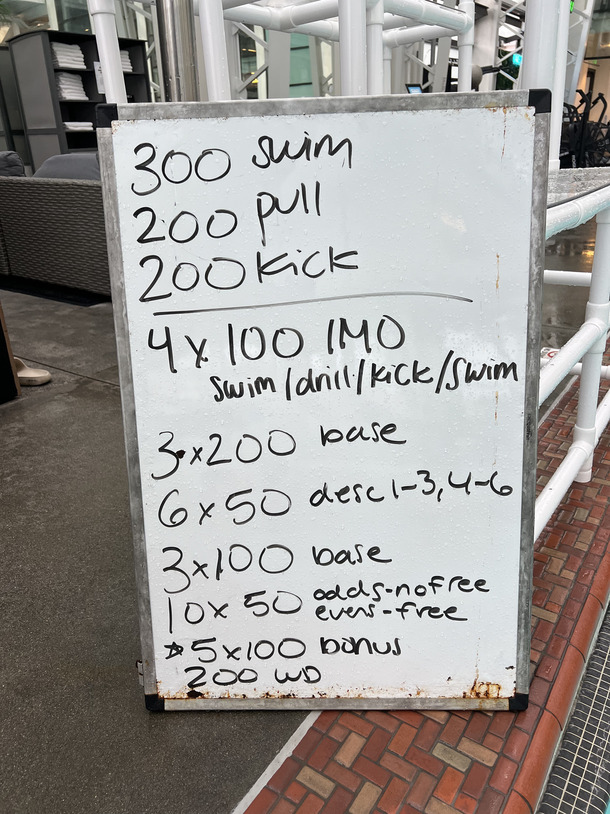 300 swim
200 pull
200 kick
4 x 100 IMO
swim/drill/kick/swim
3 x 200 base
6 x 50 desc 1-3, 4-6
3 x 100 base
10 x 50 odds-no free
evens-free
☆ 5 x 100 bonus
200 WD